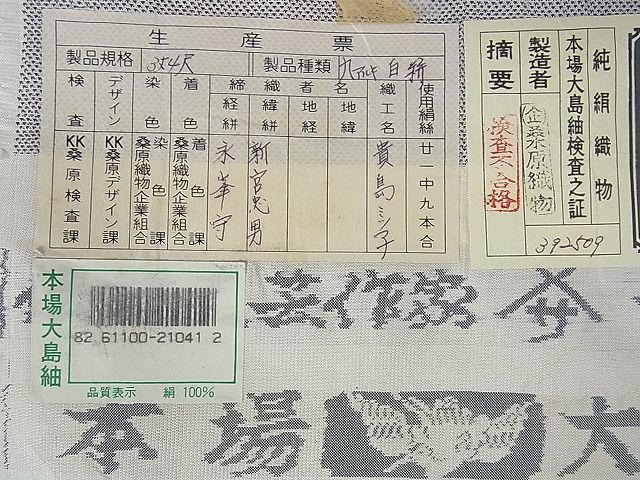 生産票
製品規格 3丈4尺 製品種類 九マルキ白絣
検査 デザイン 染色 着色 締織者名 織工名 使用絹絲
経絣 緯絣 地経 地緯
KK桑原検査課
KK桑原デザイン課
桑原織物企業組合 染色課
桑原織物企業組合 着色課
永峯守
新宮忠男
貴島ミシ子
廿一中九本合
純絹織物
本場大島紬検査之証
製造者 桑原織物
摘要 検査不合格
392509
本場大島紬
82 61100-21041 2
品質表示 絹 100%
芸作家
本場 大